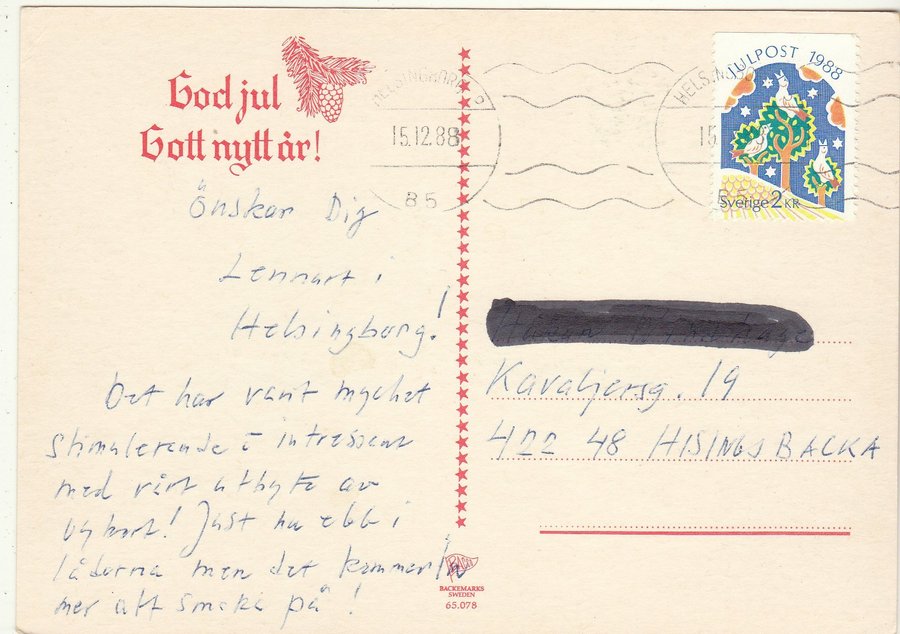 God jul
Gott nytt år!
önskar Dig
Lennart i
Helsingborg!
Det har varit mycket
stimulerande & intressant
med vårt utbyte av
vykort! Just nu ebb i
lådorna men det kommer in
mer att smaka på!
HELSINGBORG
15.12.88
85
HELSINGBO
15
JULPOST 1988
Sverige 2 KR
Kavaljersg. 19
422 48 HISINGSBACKA
BACKEMARKS
SWEDEN
65.078